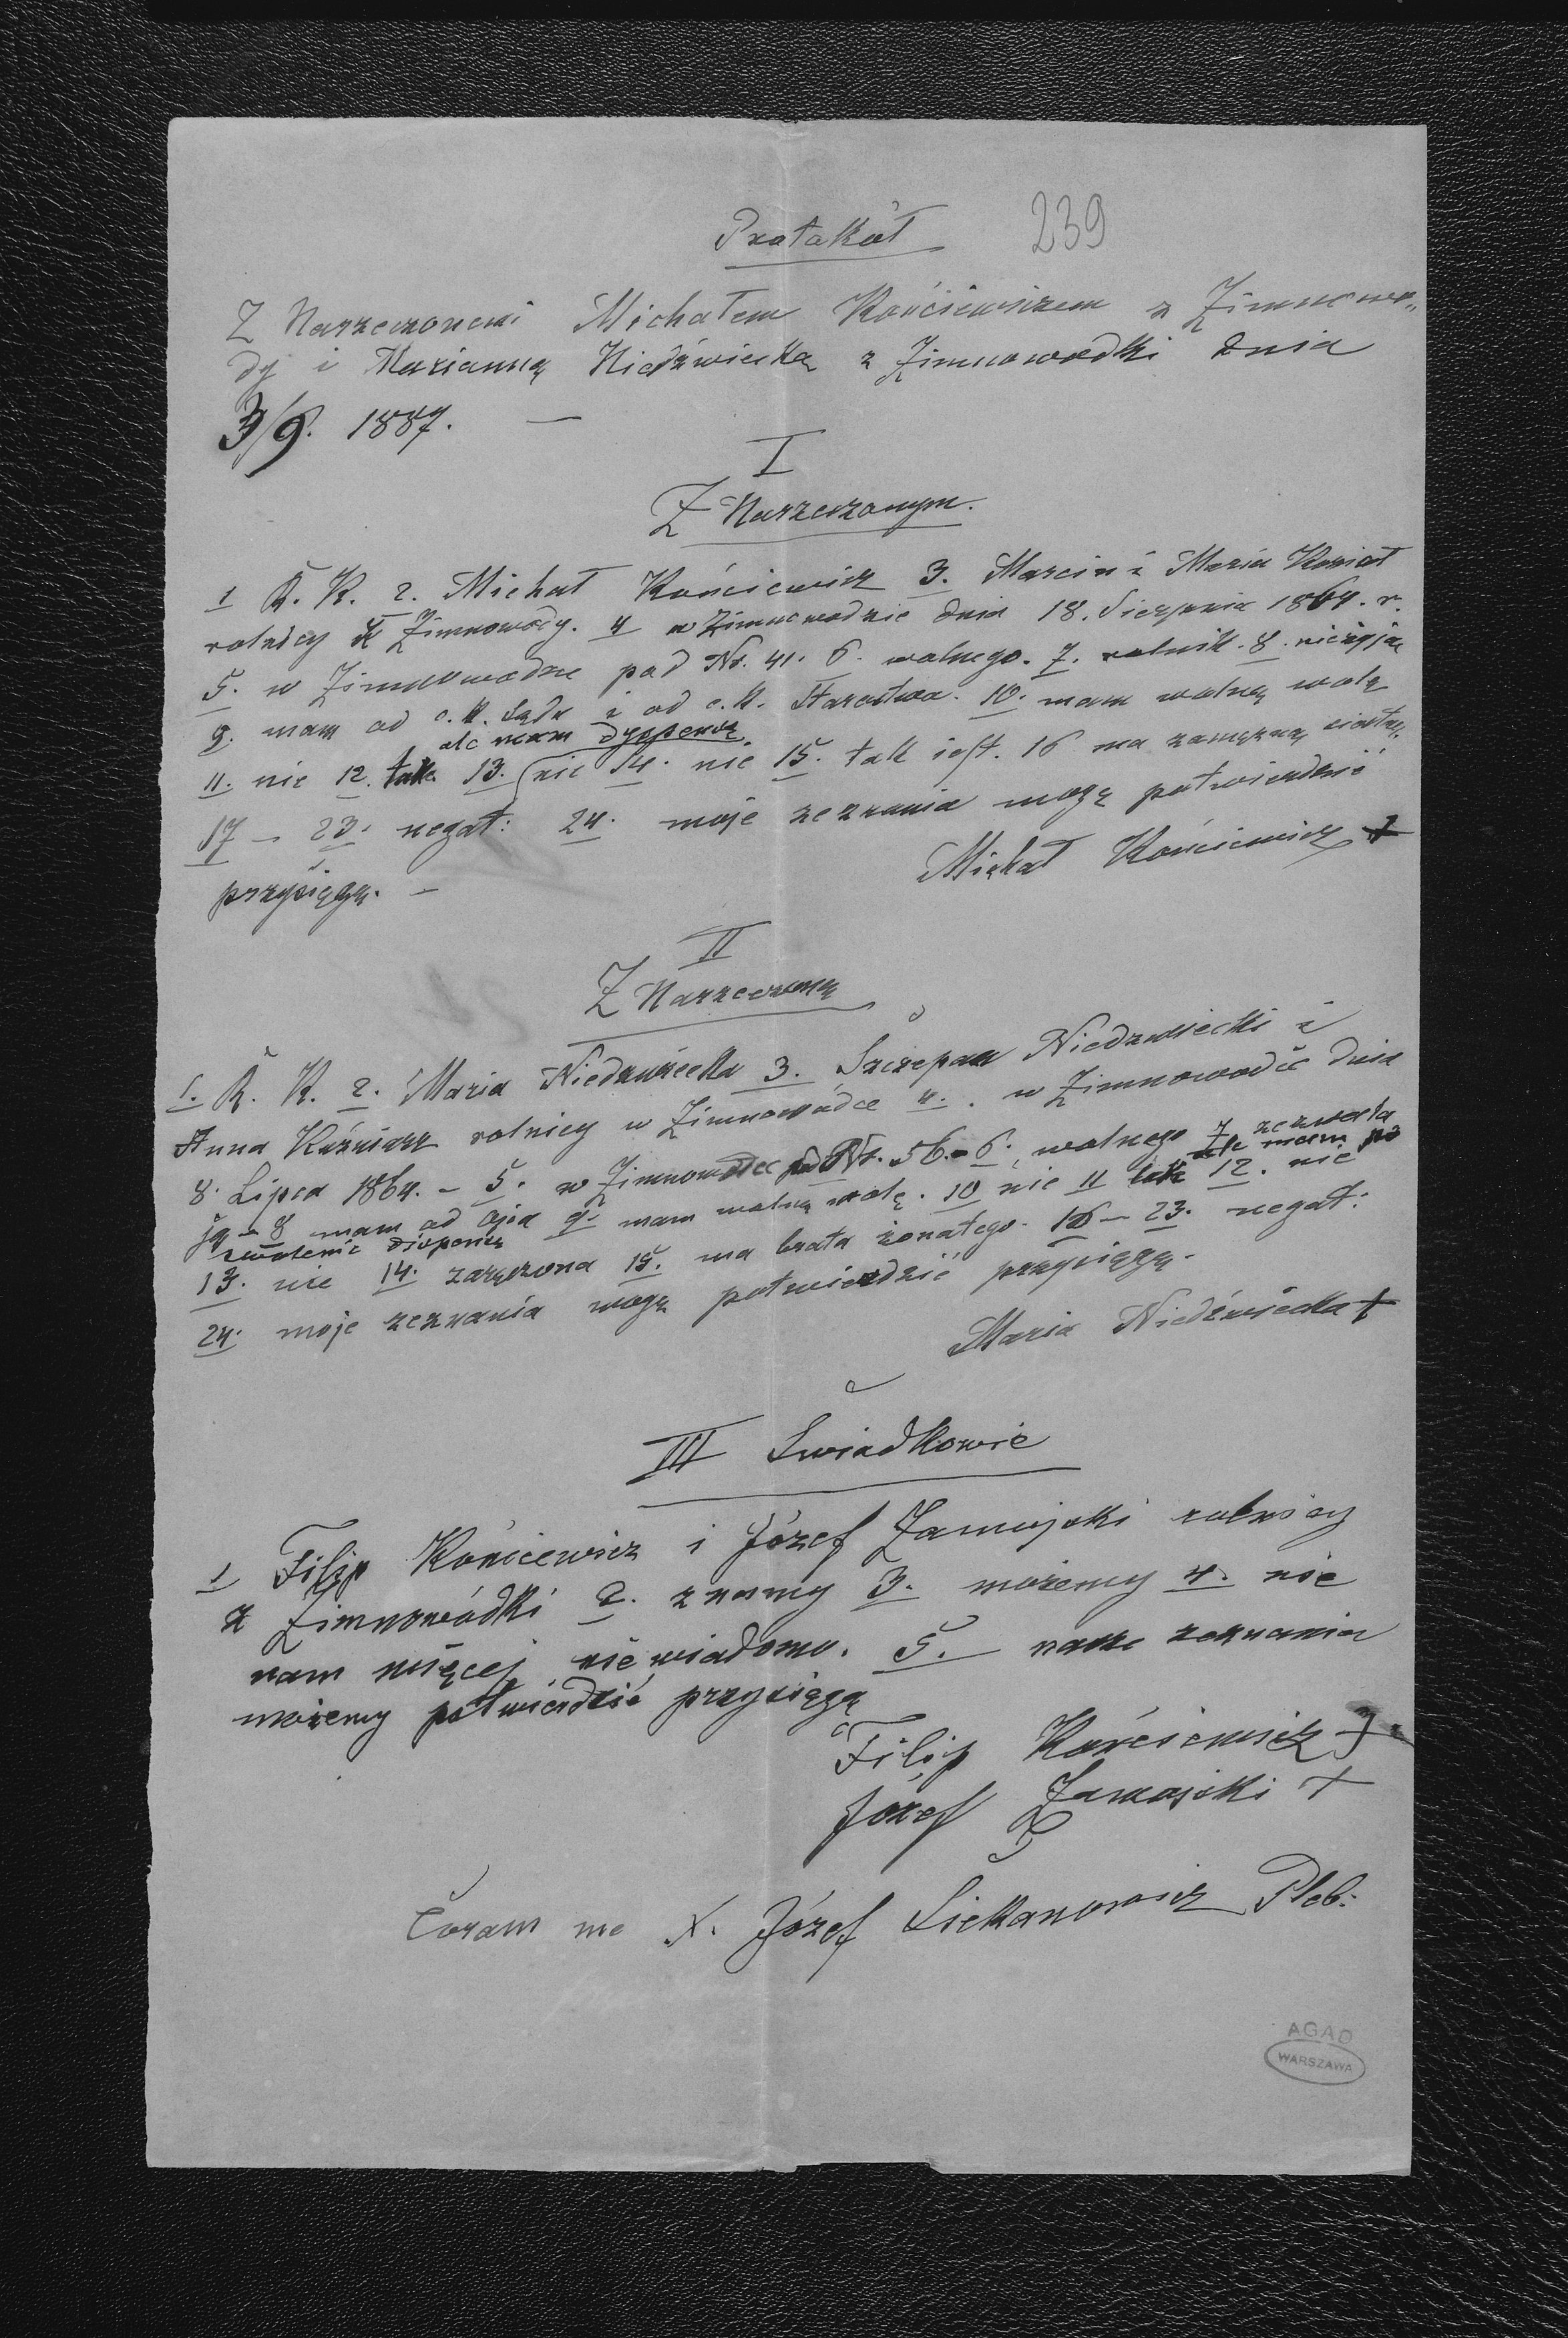 Protokół 239
Z Narzeczonemi Michałem Kośćiewiczem z Zimnowo„
dy i Marianną Niedźwiecką z Zimnowodki dnia
3/9. 1887. —
I
Z Narzeczonym.
1 R. K. 2. Michał Kościewicz 3. Marcin i Maria
rolnicy z Zimnowody. 4 w Zimnowodzie dnia 18. Sierpnia 1864. r.
5. w Zimnowodzie pod Nr. 41. 6. wolnego. 7. rolnik. 8. nieżyją
9. mam od c.k. Sądu i od c.k. Starostwa. 10. mam wolną wolę
ale mam dyspensę
11. nie 12. tak 13. nie 14. nie 15. tak jest. 16 ma zamężną siostrę.
17 – 23. negat: 24. moje zeznania mogę potwierdzić
przysięgą. –
Michał Kościewicz +
II
Z Narzeczoną
1. R. K. 2. Maria Niedzwiecka 3. Szczepan Niedzwiecki i
Anna rolnicy w Zimnowódce 4. w Zimnowodce dnia
8. Lipca 1864. – 5. w Zimnowodce pod Nr. 56 – 6. wolnego 7 zezwala
ją – 8 mam od Ojca 9. mam wolną wolę. 10 nie 11 tak 12. nie
ale mam po
zwolenie dispensę
13. nie 14. zaręczona 15. ma brata żonatego. 16 – 23. negat:
24. moje zeznania mogę potwierdzić przysięgą.
Maria Niedźwiecka +
III Świadkowie
1 Filip Kościewicz i Józef Zamojski rolnicy
z Zimnowódki 2. znamy 3. możemy 4. nie
nam więcej nie wiadomo. 5. – nasze zeznania
możemy potwierdzić przysięgą
Filip Kościewicz +
Józef Zamojski +
Coram me X. Józef Siekanowicz Pleb:
AGAD
WARSZAWA